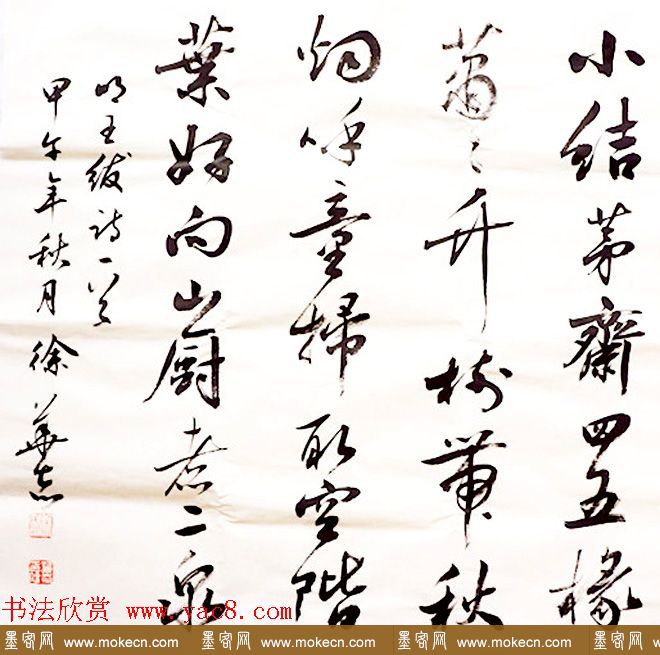 小結茅齋四五椽
蕭〻竹樹帶秋
烟呼童掃取空階
葉好向山廚煮二泉
明王紱詩一首
甲午年秋月徐華志
书法欣赏 www.yac8.com
墨客网 www.mokecn.com 墨客网 www.mokecn.com 墨客网 www.mokecn.com 墨客网 www